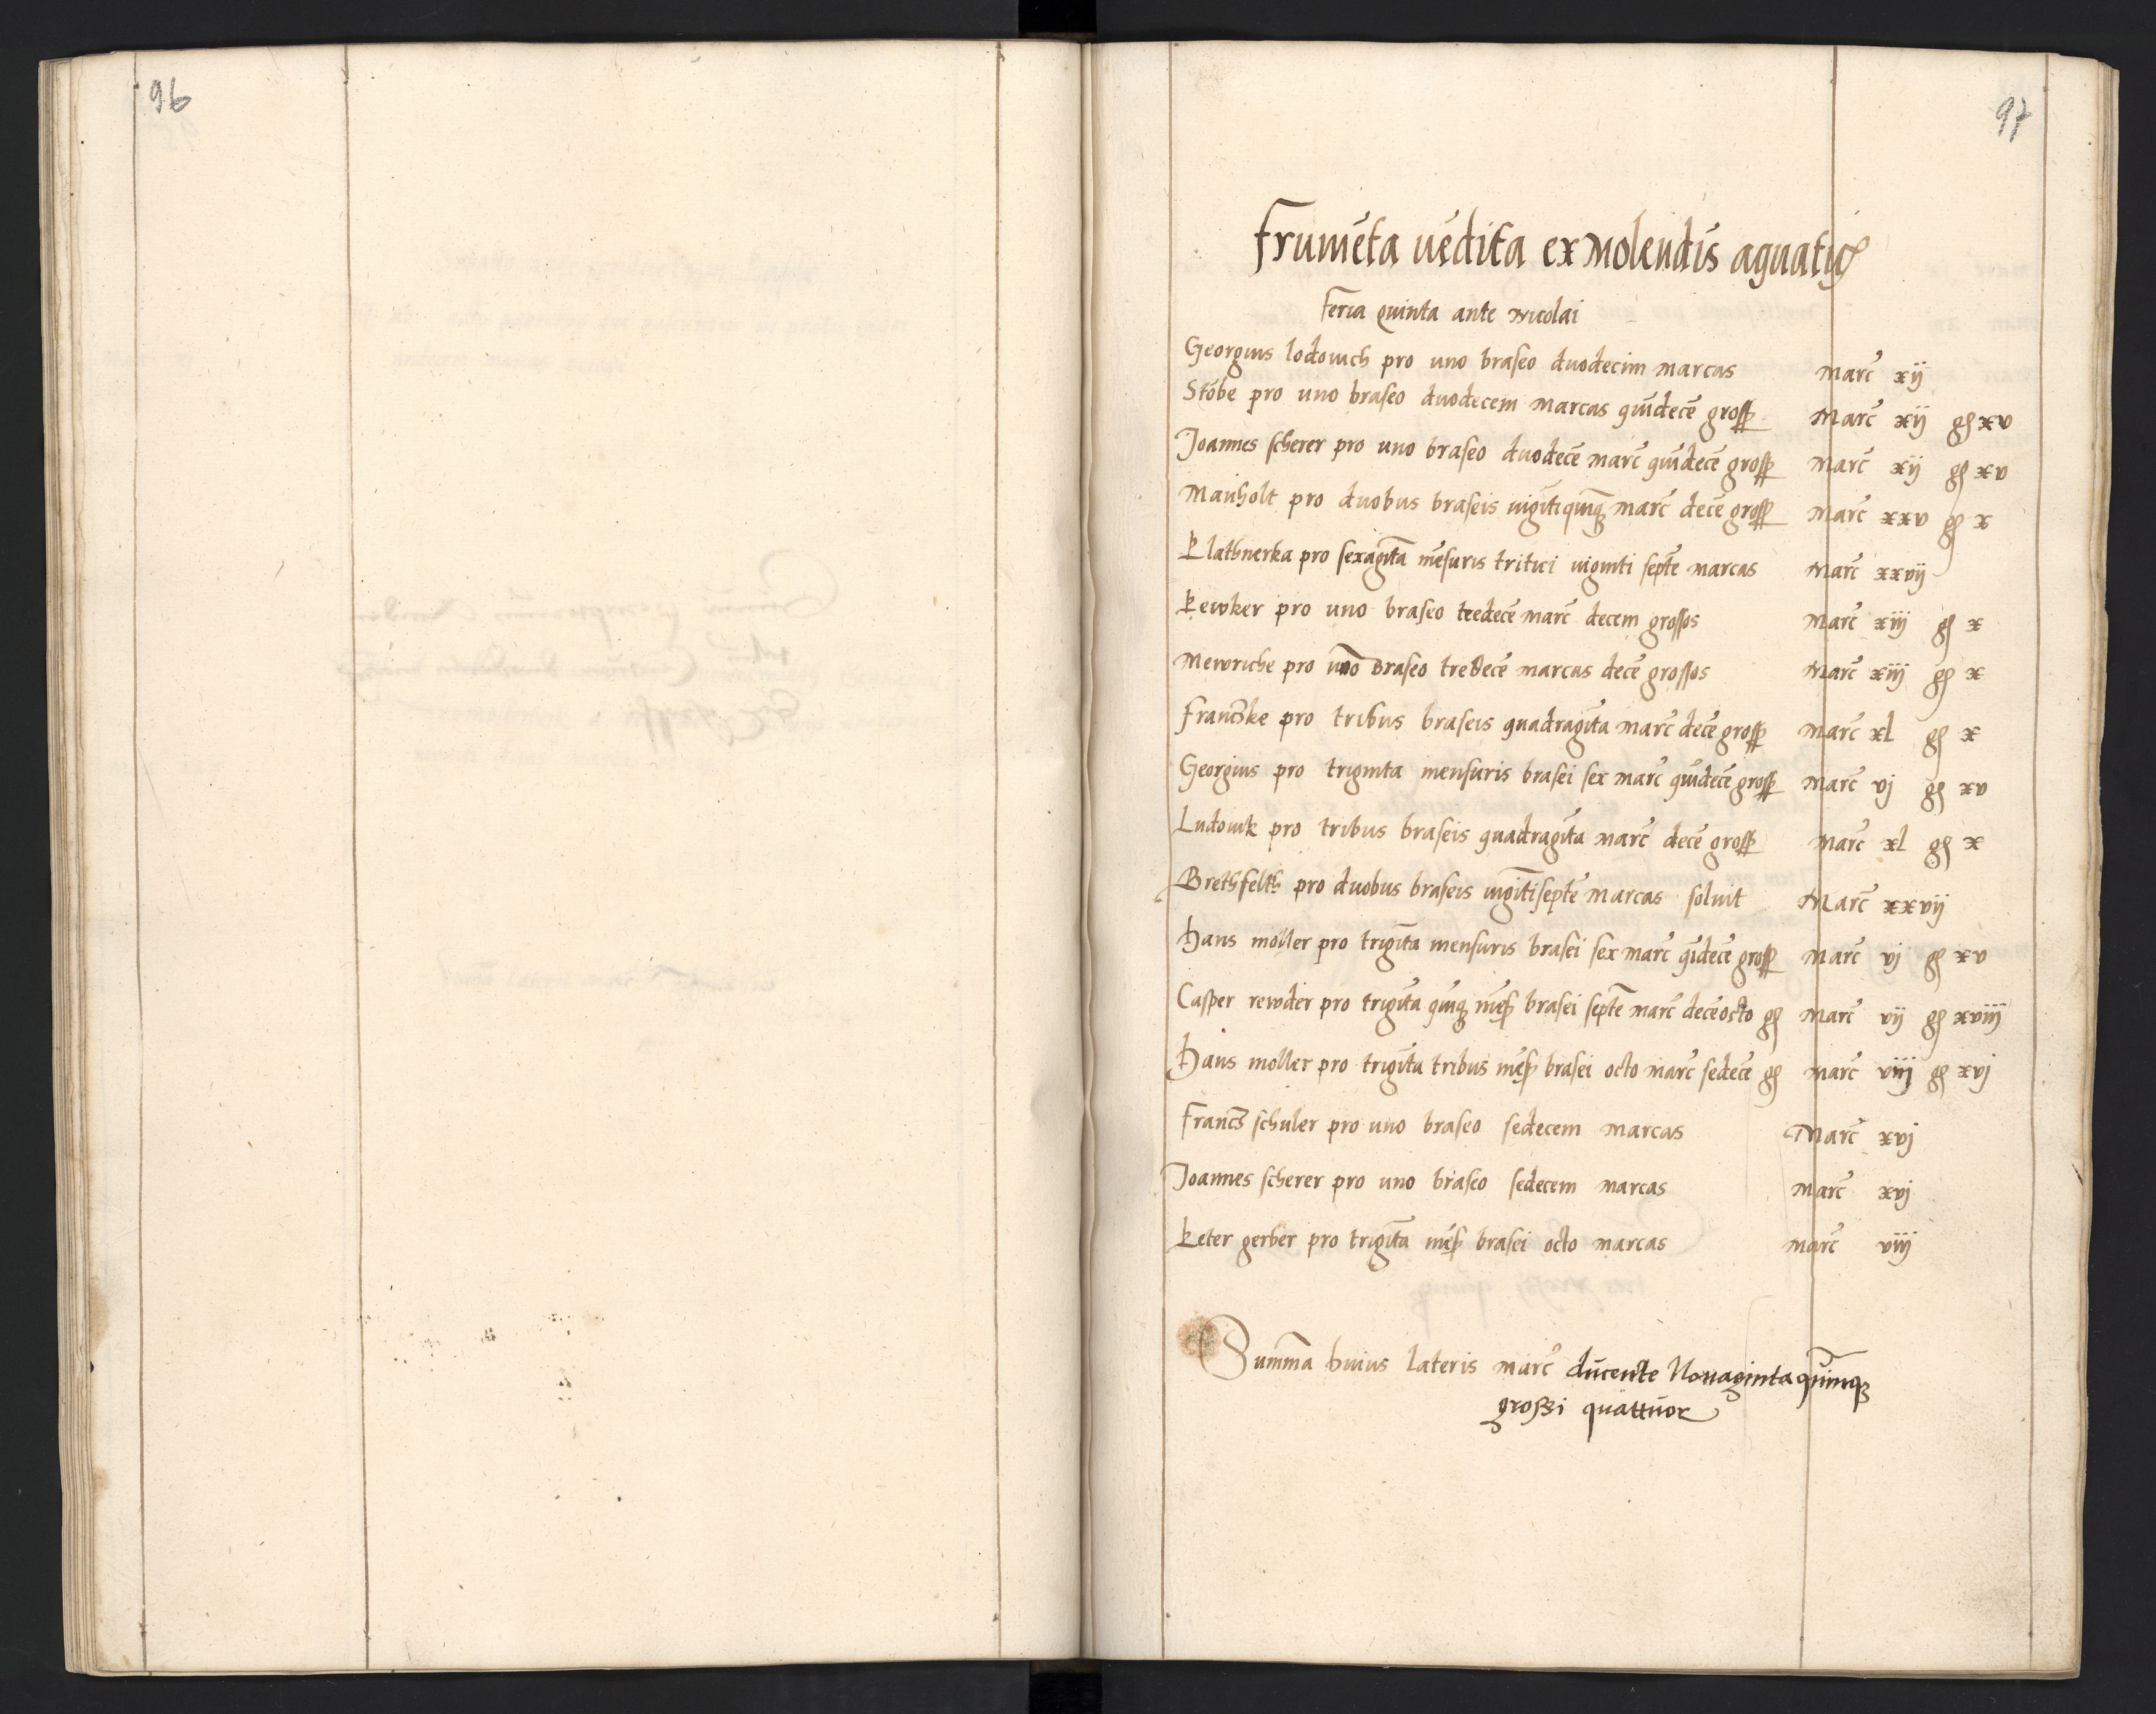 96
97
frumēta uēdita ex Molendis aquaticꝭ
feria quinta ante Nicolai
Georgius lodouich pro uno braseo duodecim marcas Marc̄ xij
Stöbe pro uno braseo duodecem marcas quīdecē gross Marc̄ xij gß xv
Joannes scherer pro uno braseo duodecē marc̄ quīdecē gross Marc̄ xij gß xv
Manholt pro duobus braseis uigītiquīqꝫ marc̄ decē gross Marc̄ xxv gß x
Plathnerka pro sexagīta mēsuris tritici uiginti septē marcas Marc̄ xxvij
Pewker pro uno braseo tredecē marc̄ decem grossos Marc̄ xiij gß x
Mewriche pro uno Braseo tredecē marcas decē grossos Marc̄ xiij gß x
Franczke pro tribus braseis quadragīta marc̄ decē gross Marc̄ xl gß x
Georgius pro triginta mensuris brasei sex marc̄ quīdecē gross Marc̄ vj gß xv
Ludouik pro tribus braseis quadragīta marc̄ decē gross Marc̄ xl gß x
Brethfelth pro duobus braseis uigītiseptē marcas soluit Marc̄ xxvij
Hans moller pro trigīta mensuris brasei sex marc̄ qīdecē gross Marc̄ vj gß xv
Casper rewder pro trigīta quīqꝫ mēs brasei septē marc̄ decēocto gß Marc̄ vij gß xviij
Hans moller pro trigīta tribus mēs brasei octo marc̄ sedecē gß Marc̄ viij gß xvj
Francz schuler pro uno braseo sedecem marcas Marc̄ xvj
Joannes scherer pro uno braseo sedecem marcas Marc̄ xvj
Peter gerber pro trigīta mēs brasei octo marcas Marc̄ viij
Summa huius lateris marc̄ ducente Nonaginta quinqꝫ
grossi quattuor